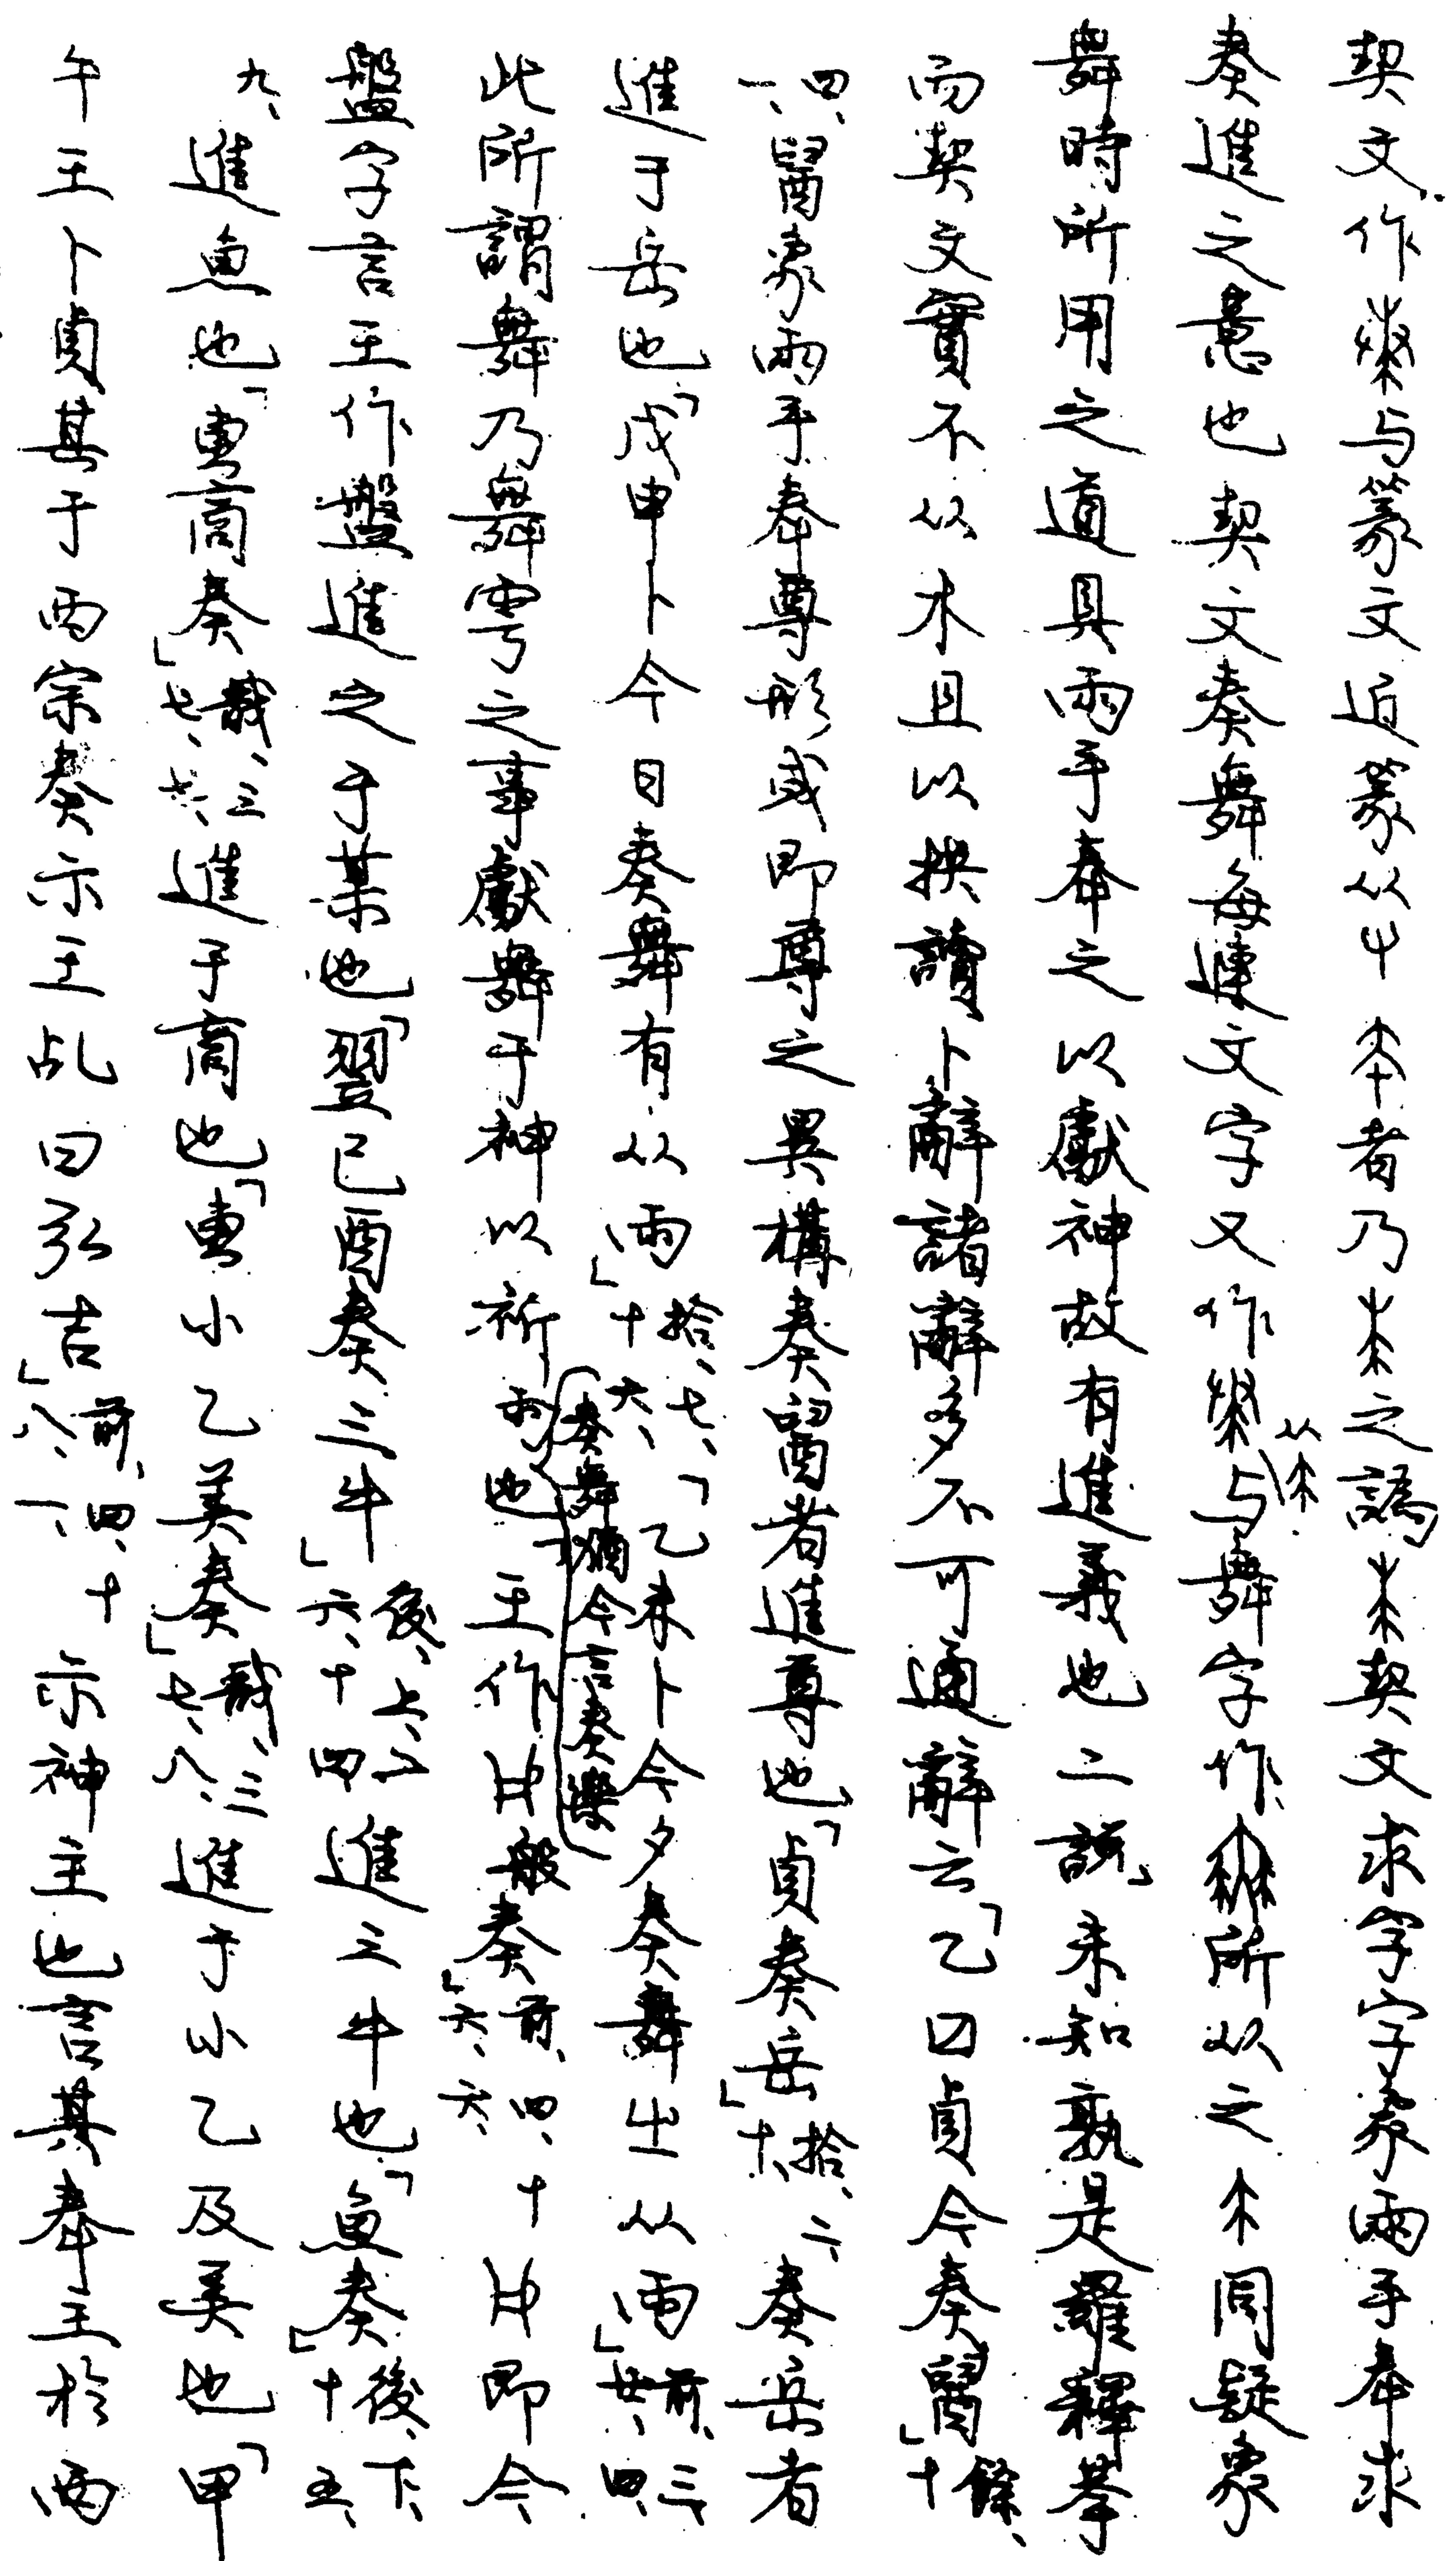 契文作與篆文近篆从屮者乃之譌契文求字字象兩手奉求
奏進之意也契文奏舞每連文字又作与舞字作所从之同疑象
从
舞時所用之道具兩手奉之以獻神故有進義也二說未知孰是羅釋
而契文實不从木且以读卜辭諸辭多不可通辭云「乙囚貞今奏𨣧」餘、十
四、一、𨣧象兩手奉尊形或即尊之異構奏𨣧者進尊也「貞奏岳」拾、二、十、奏岳者
進于岳也「戊申卜今日奏舞有从雨」拾、七、十六、「乙未卜今夕奏舞㞢从雨」前、三、廿、四、
此所謂舞乃舞雩之事獻舞于神以祈雨也王作般奏」前、四、十六、六、即今
(奏舞猶今言奏樂)
盤字言王作盤進之于某也「翌已酉奏三牛」後、上、廿六、十四進三牛也「魚奏」後、下、十五、
九、進魚也「叀商奏」戩、三七、七、進于商也「叀小乙美奏」戩、三七、八、進于小乙及美也「甲
午王卜貞其于西宗奏示王占曰弘吉」前、四、十八、一、示神主也言其奉主於西